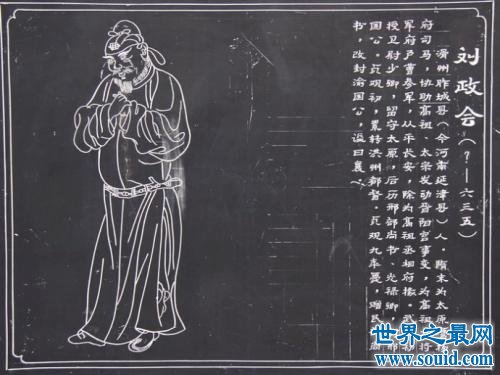 刘政会(？—六三五)
滑州胙城县(今河南延津县)人，隋末为太原鹰扬
府司马，协助高祖、太宗发动晋阳宫事变，为高祖大将
军府户曹参军，从平长安，除为高祖丞相府掾。武德初
授卫尉少卿，留守太原，后历刑部尚书、光禄卿，封邢
国公。贞观初，累转洪州都督，贞观九年薨，赠民部尚
书，改封渝国公，谥曰襄。
世界之最网
www.souid.com